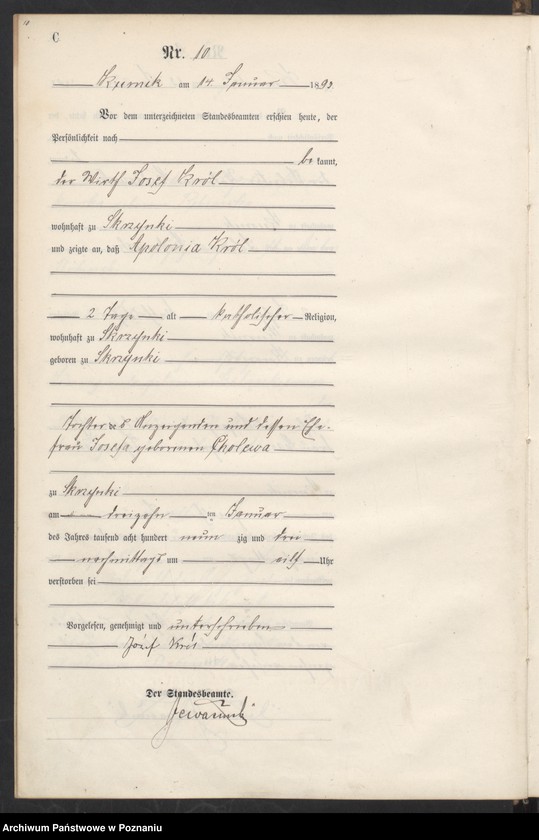 10
C
Nr. 10
Kurnik am 14. Januar 1893
Vor dem unterzeichneten Standesbeamten erschien heute, der
Persönlichkeit nach
be kannt,
der Wirth Josef Król
wohnhaft zu Skrzynki
und zeigte an, daß Apolonia Król
2 Tage alt katholischer Religion,
wohnhaft zu Skrzynki
geboren zu Skrzynki
Tochter des Anzeigenden und dessen Ehe-
frau Josefa geborenen Cholewa
zu Skrzynki
am dreizehn ten Januar
des Jahres tausend acht hundert neun zig und drei
nachmittags um eilf Uhr
verstorben sei
Vorgelesen, genehmigt und unterschrieben
Józef Król
Der Standesbeamte.
Archiwum Państwowe w Poznaniu